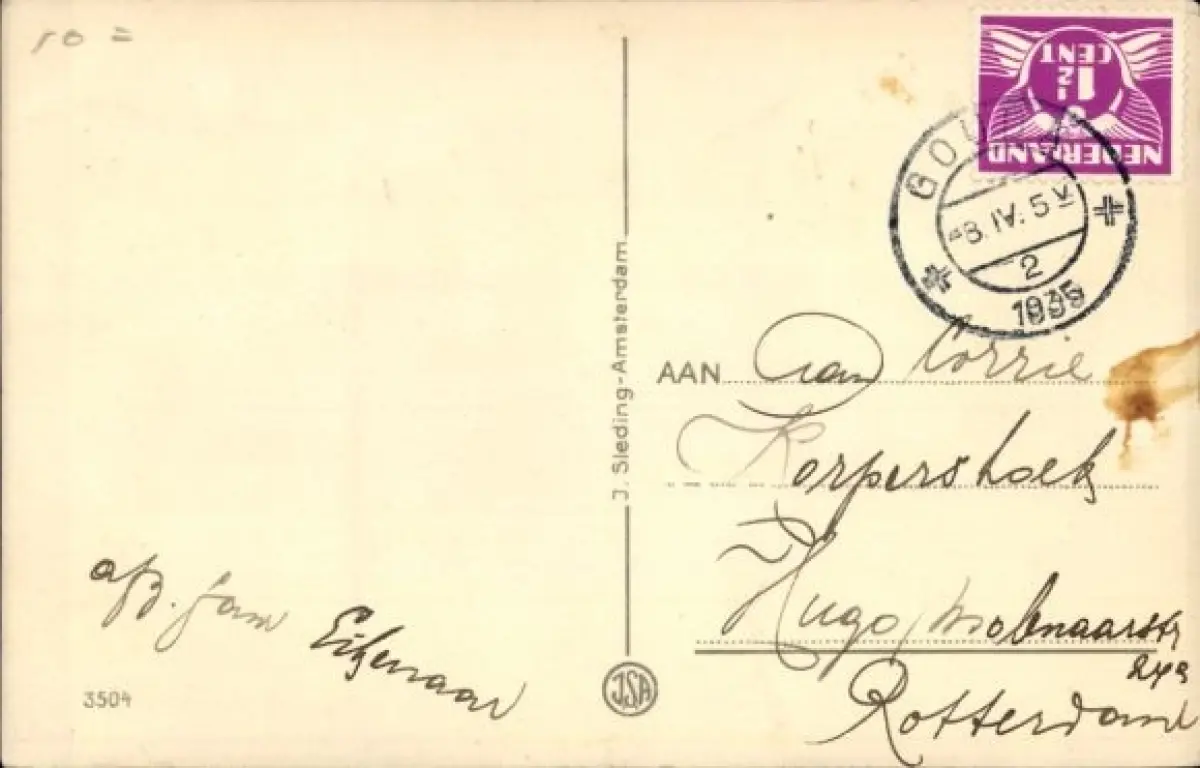 10 =
NEDERLAND
1½
CENT
GOUDA
-8.IV.5 V
2
1935
J. Sleding-Amsterdam.
AAN Aan Corrie
Korpershoek
Hugo Molenaarstr
Rotterdam
afz. Jam Eizenaar
3504
JSA